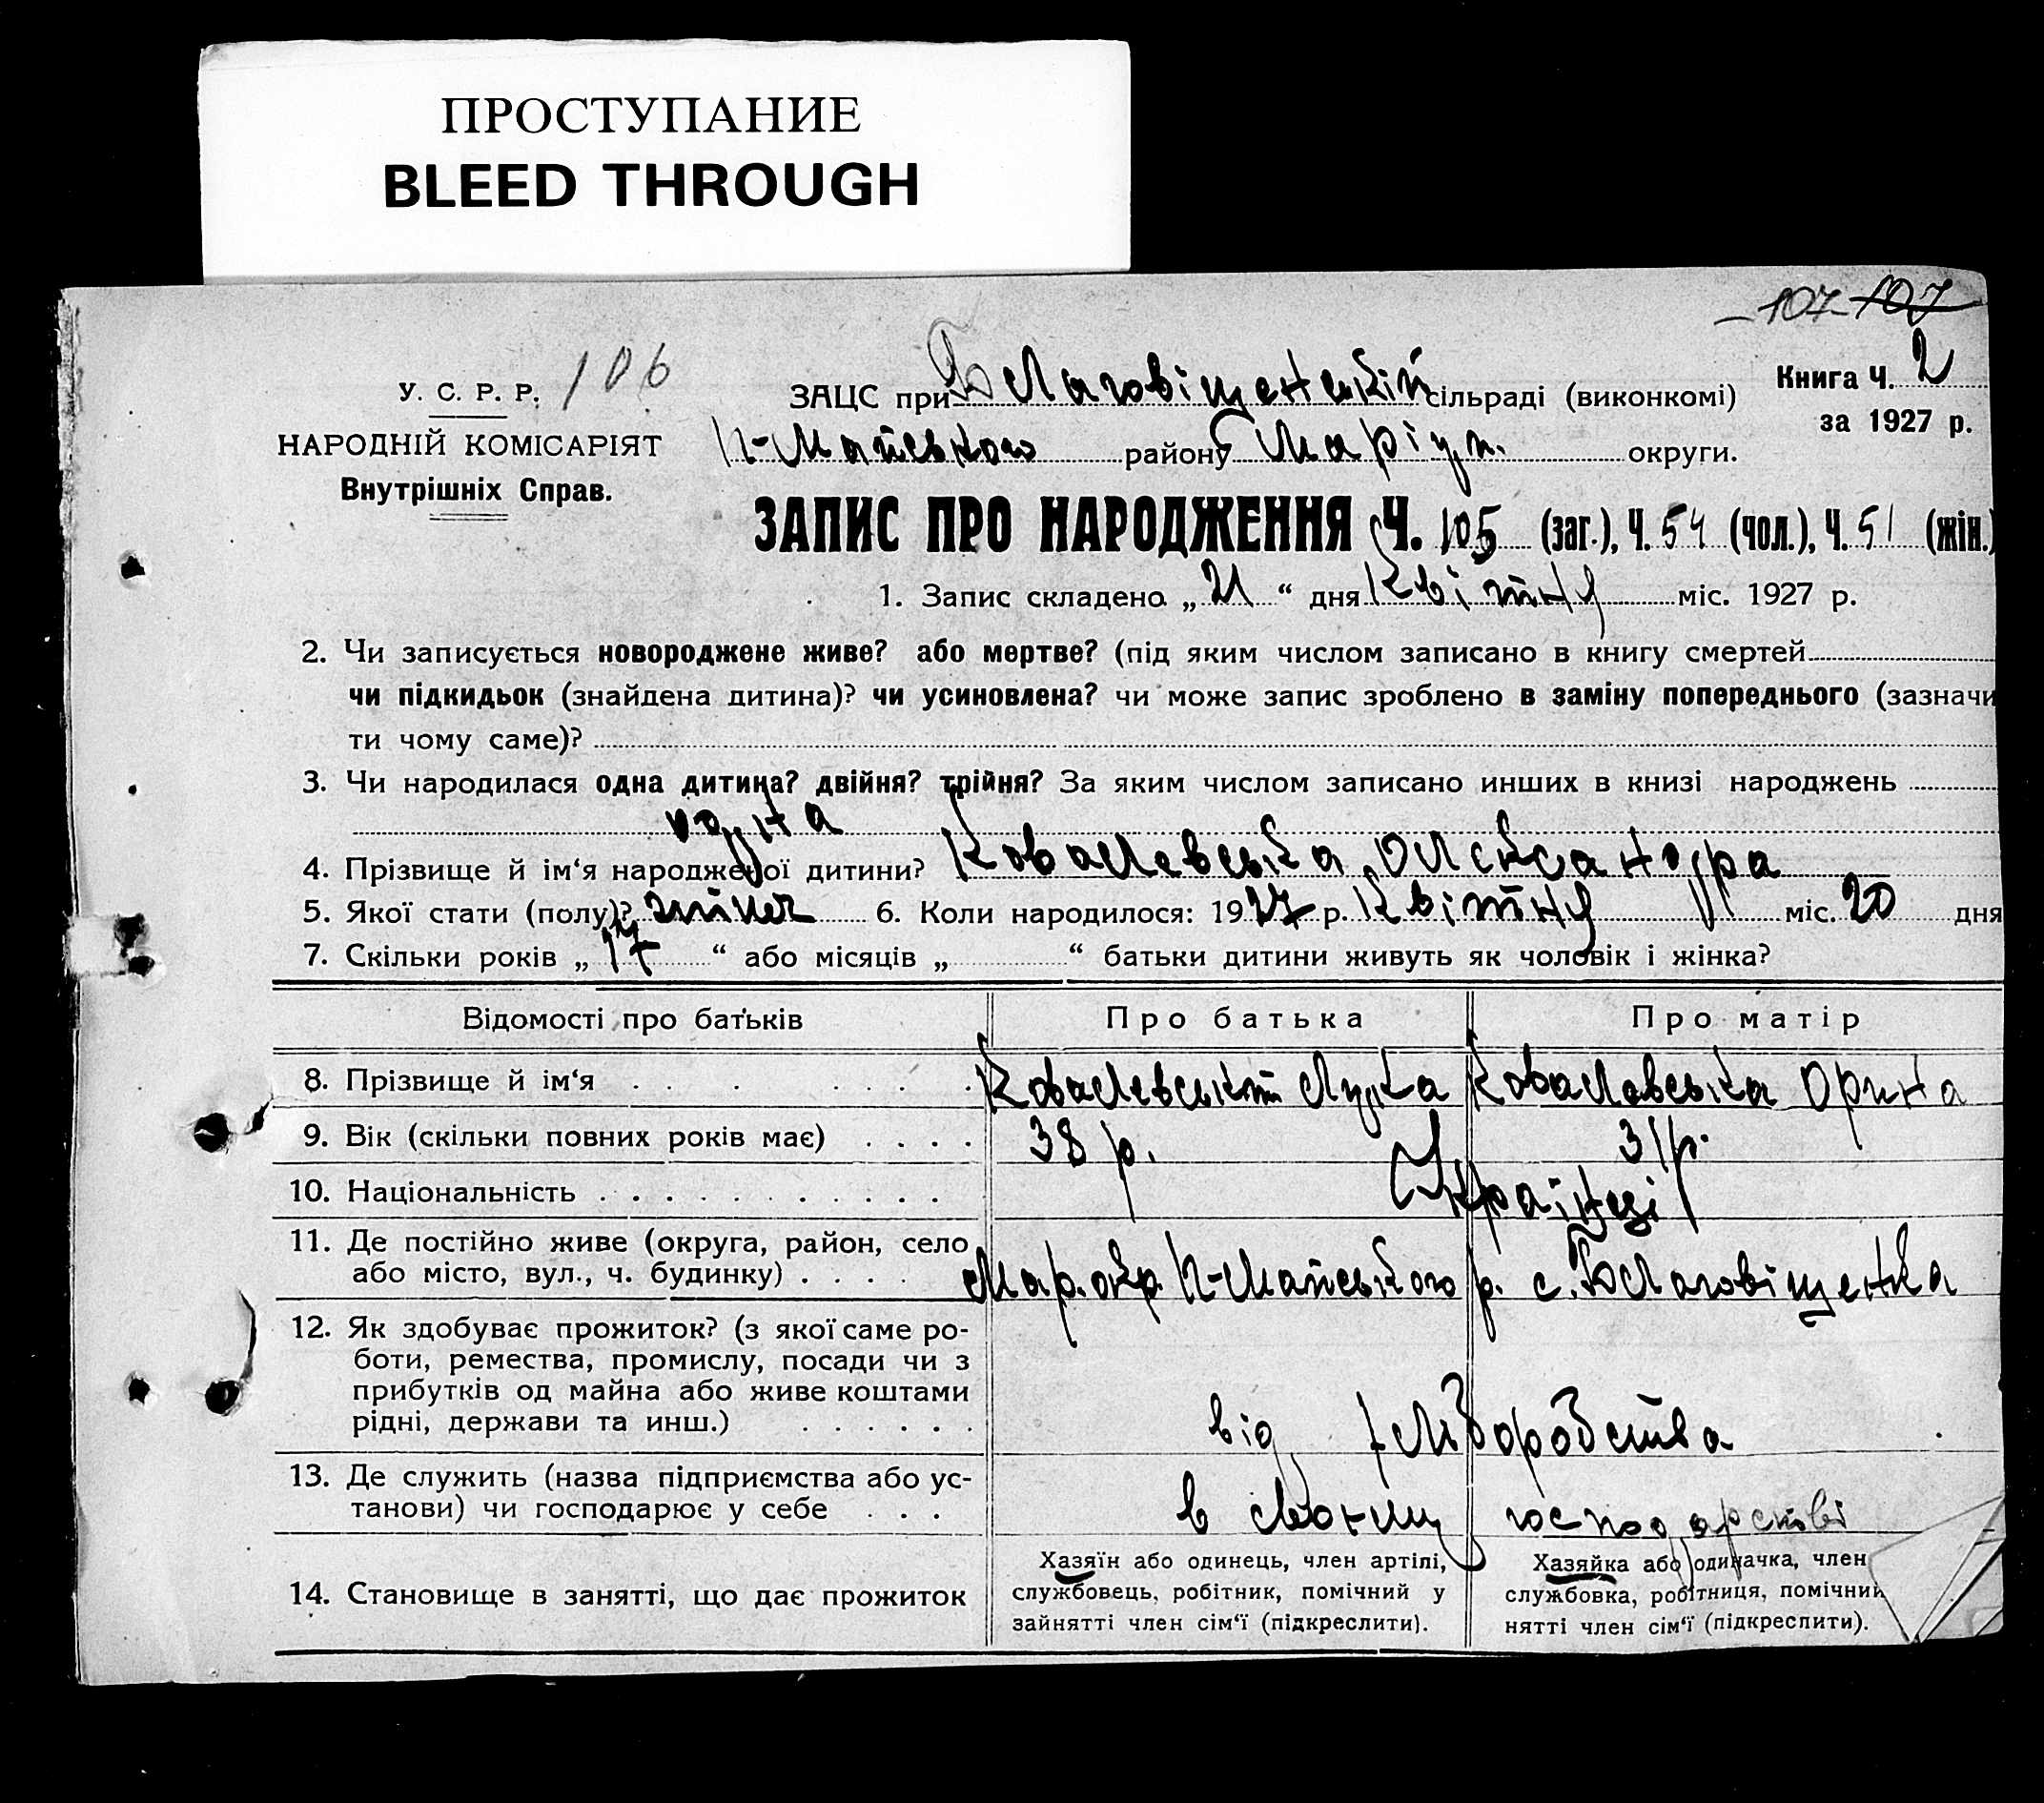 ПРОСТУПАНИЕ
BLEED THROUGH
- 107 107
106
У. С. Р. Р.
НАРОДНІЙ КОМІСАРІЯТ
Внутрішніх Справ.
ЗАЦС при Благовіщенській сільраді (виконкомі)
Книга Ч. 2
за 1927 р.
П-Майського району Маріуп. округи.
ЗАПИС ПРО НАРОДЖЕННЯ Ч. 105 (заг.), Ч. 54 (чол.), Ч. 51 (жін.)
1. Запис складено „21“ дня Квітня міс. 1927 р.
2. Чи записується новороджене живе? або мертве? (під яким числом записано в книгу смертей
чи підкидьок (знайдена дитина)? чи усиновлена? чи може запис зроблено в заміну попереднього (зазначи
ти чому саме)?
3. Чи народилася одна дитина? двійня? трійня? За яким числом записано инших в книзі народжень
одна
4. Прізвище й ім‘я народженої дитини? Ковалевська Олександра
5. Якої стати (полу)? жіноч 6. Коли народилося: 1927 р. Квітня міс. 20 дня
7. Скільки років „17“ або місяців „ “ батьки дитини живуть як чоловік і жінка?
Відомості про батьків
Про батька
Про матір
8. Прізвище й ім‘я . . . . . . Ковалевський Лука Ковалевська Орина
9. Вік (скільки повних років має) . . . . 38 р. 31 р.
10. Національність . . . . . . . . . . . Українці
11. Де постійно живе (округа, район, село
або місто, вул., ч. будинку) . . . . Мар. окр. П-Майського р. с. Благовіщенка
12. Як здобуває прожиток? (з якої саме ро-
боти, ремества, промислу, посади чи з
прибутків од майна або живе коштами
рідні, держави та инш.) . . . . . .
від хліборобства
13. Де служить (назва підприємства або ус-
танови) чи господарює у себе . . .
в своєму господарстві
14. Становище в занятті, що дає прожиток
Хазяїн або одинець, член артілі,
службовець, робітник, помічний у
зайнятті член сім‘ї (підкреслити).
Хазяйка або одиначка, член
службовка, робітниця, помічний
нятті член сім‘ї (підкреслити).